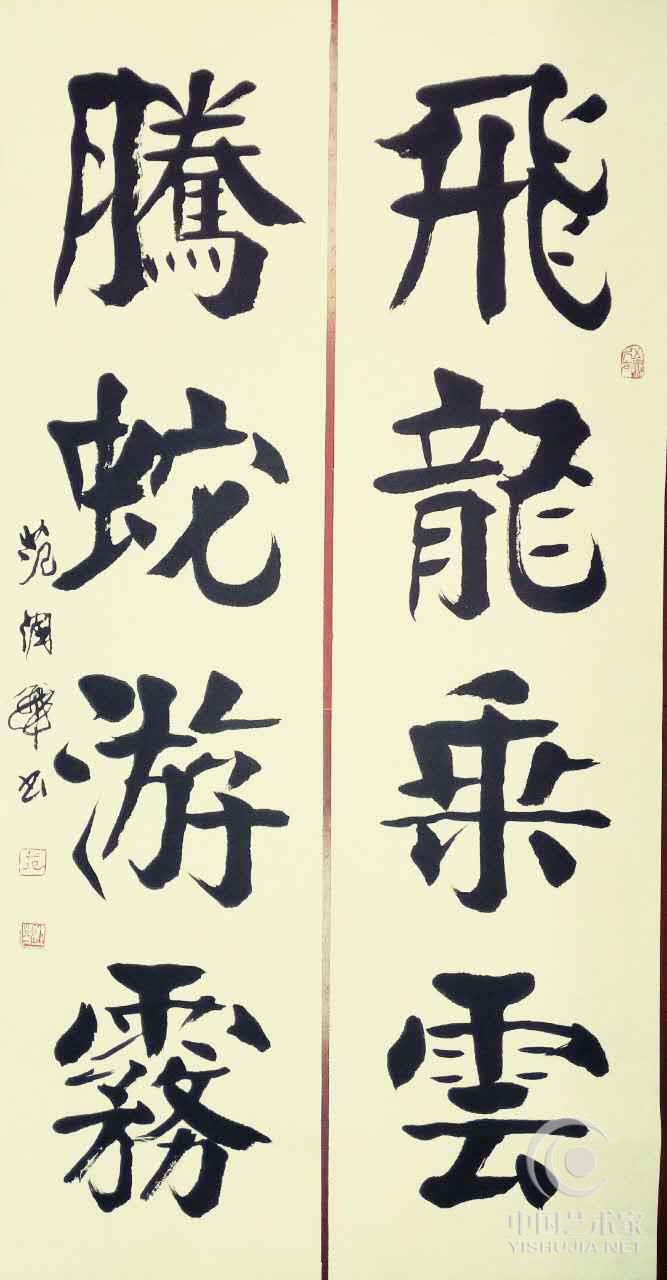 飛龍乘雲
騰蛇游霧
范國華书
中国艺术家
YISHUJIA.NET